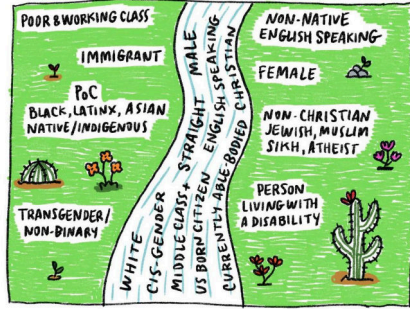 POOR & WORKING CLASS
IMMIGRANT
PoC
BLACK, LATINX, ASIAN
NATIVE/INDIGENOUS
TRANSGENDER/
NON-BINARY
WHITE
CIS-GENDER
MIDDLE CLASS+ STRAIGHT MALE
US BORN CITIZEN ENGLISH SPEAKING
CURRENTLY ABLE-BODIED CHRISTIAN
NON-NATIVE
ENGLISH SPEAKING
FEMALE
NON-CHRISTIAN
JEWISH, MUSLIM
SIKH, ATHEIST
PERSON
LIVING WITH
A DISABILITY